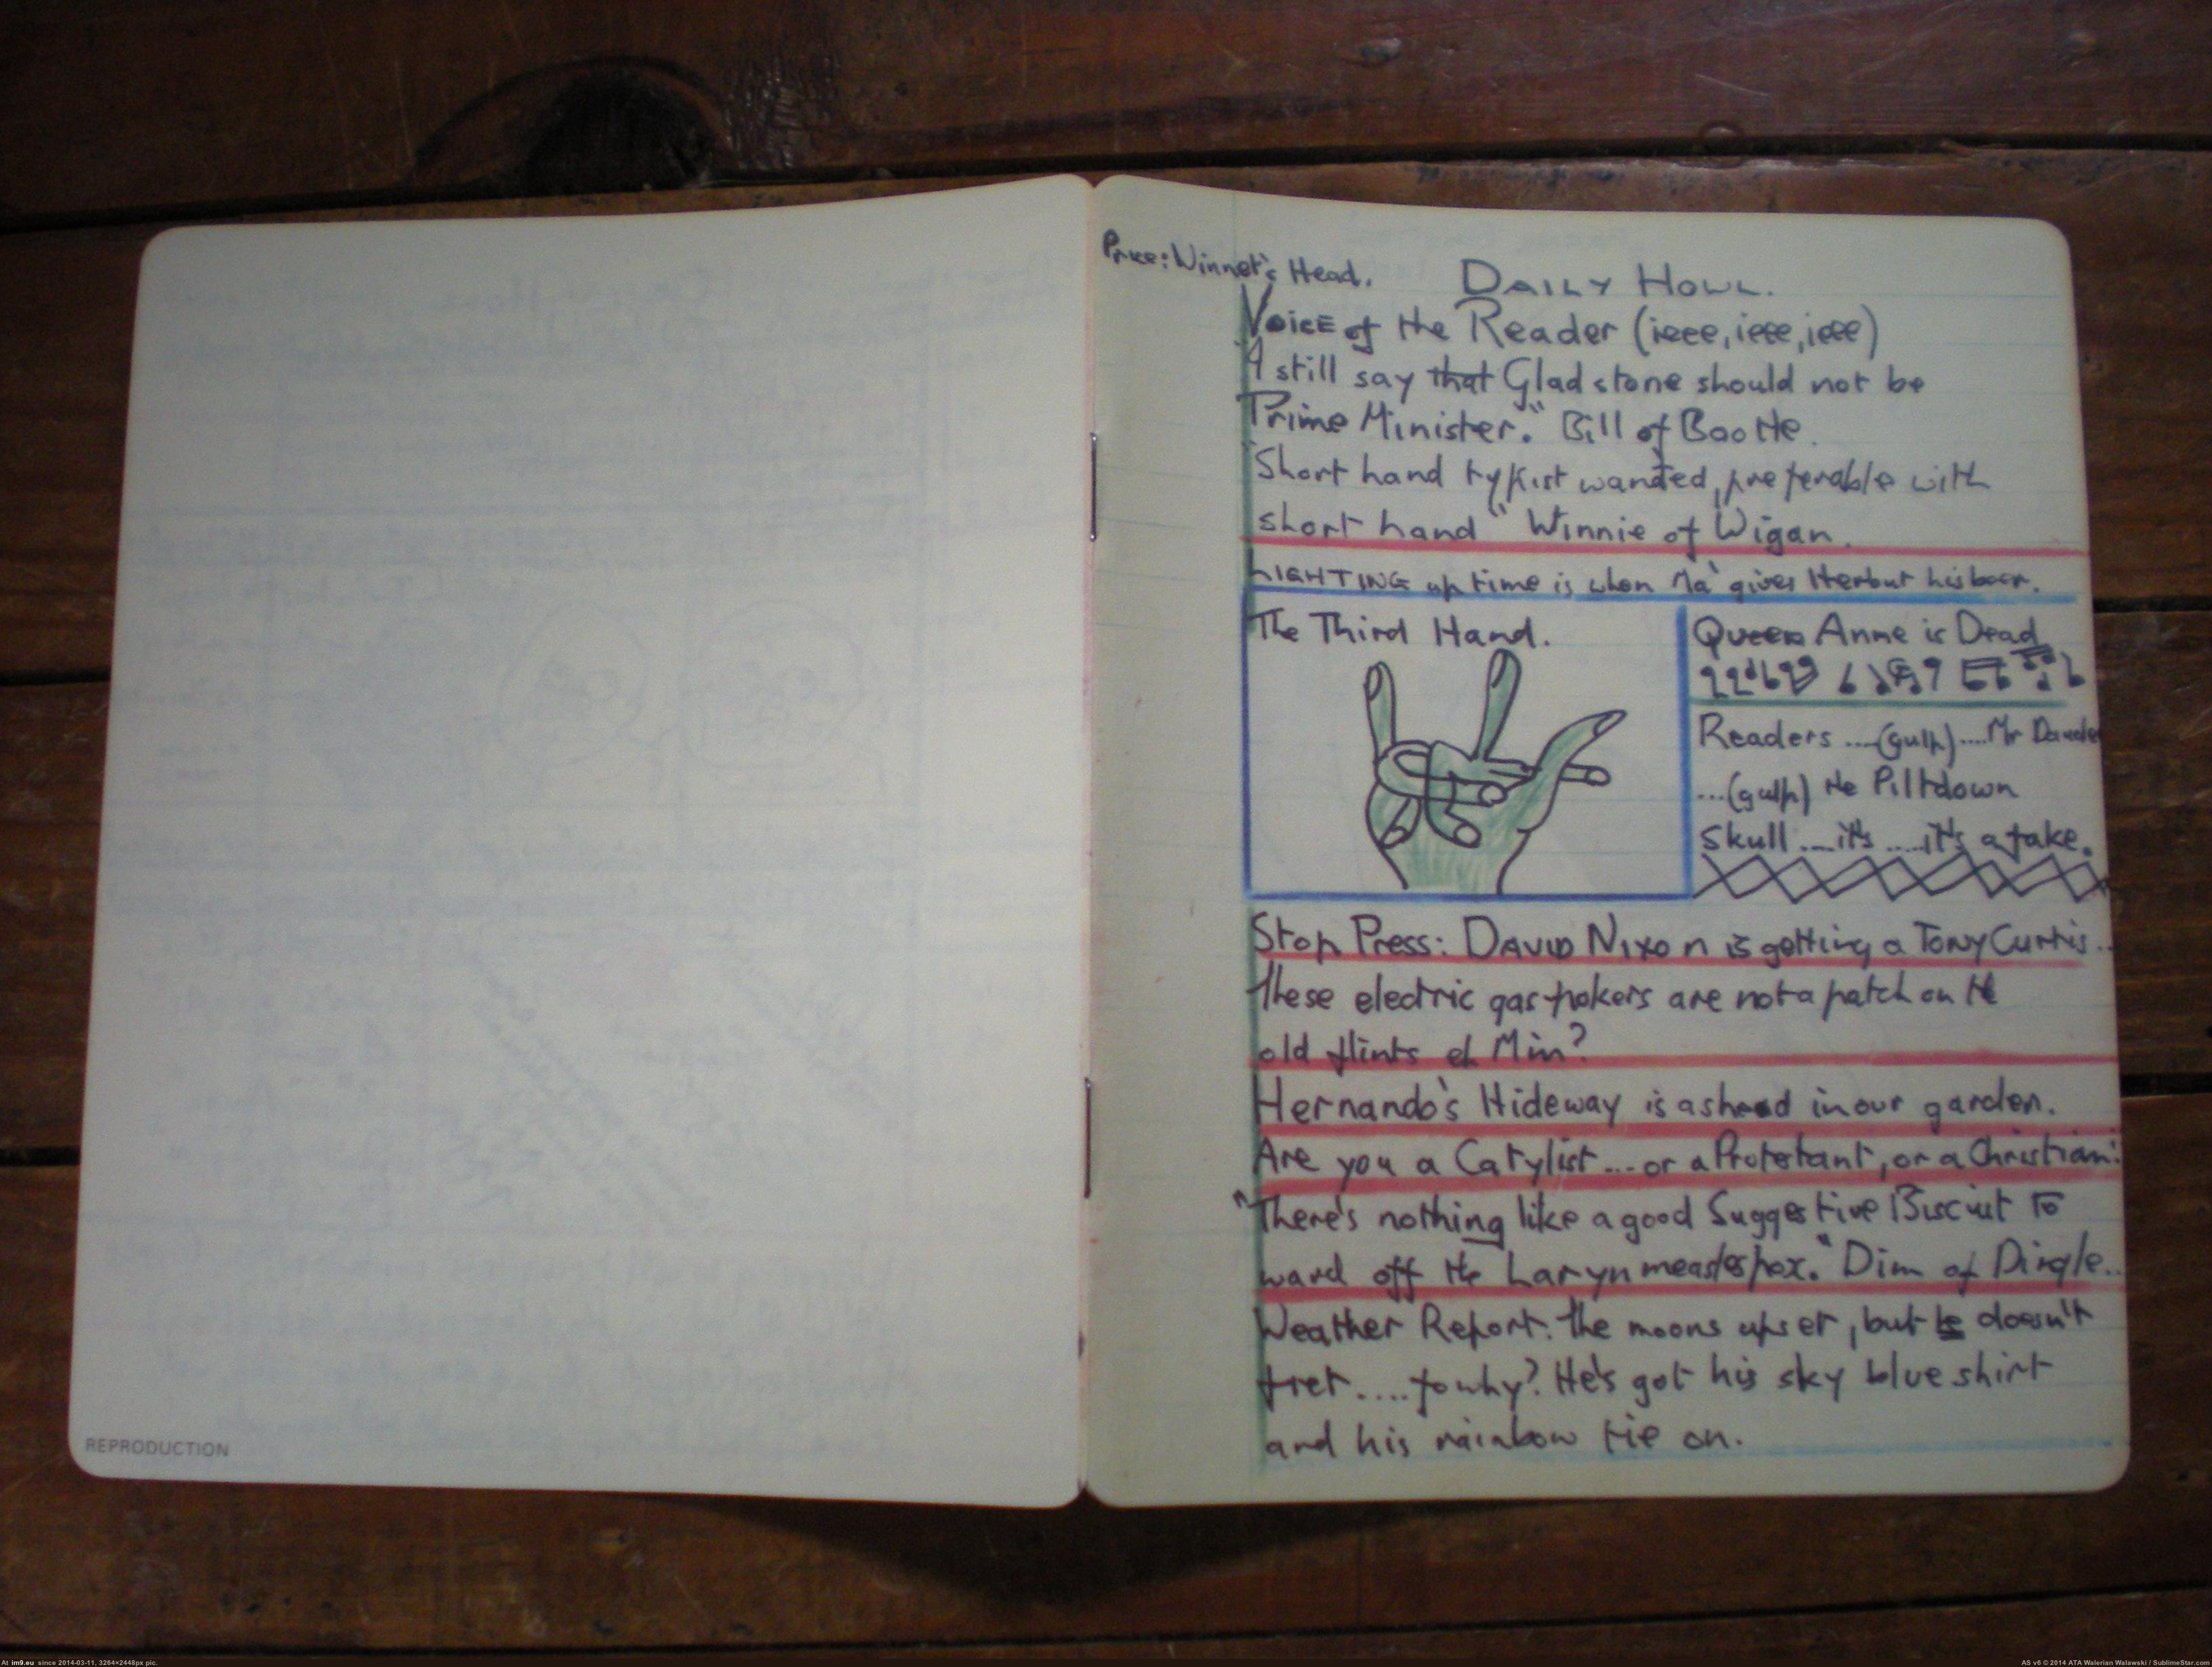 Price: Winnet's Head. DAILY HOWL.
Voice of the Reader (ieee, ieee, ieee)
"I still say that Gladstone should not be
Prime Minister." Bill of Bootle.
"Short hand typist wanted, preferable with
short hand" Winnie of Wigan.
LIGHTING up time is when Ma gives Herbut his beer.
The Third Hand.
Queen Anne is Dead
Readers ....(gulp)....Mr
...(gulp) the Piltdown
Skull ....it's .....it's a fake.
Stop Press: DAVID NIXON is getting a TONY Curtis..
These electric gas pokers are not a patch on the
old flints eh Min?
Hernando's Hideway is a shead in our garden.
Are you a Catylist....or a Protestant, or a Christian!
"There's nothing like a good Suggestive Biscuit to
ward off the Larynmeaslespox." Dim of Dingle..
Weather Report: The moons upset, but he doesn't
fret....fowhy? He's got his sky blue shirt
and his rainbow tie on.
REPRODUCTION
At im9.eu since 2014-03-11, 3264×2448px pic.
AS v6 © 2014 ATA Walerian Walawski / SublimeStar.com